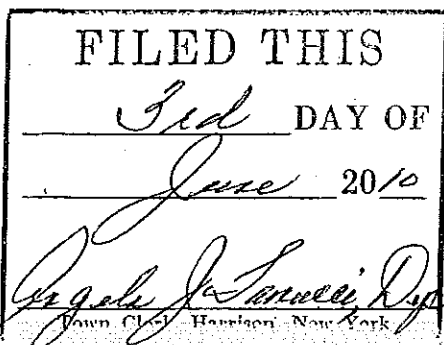 FILED THIS
3rd DAY OF
June 2010
Angela J. Ianucci, Dep
Town Clerk Harrison New York